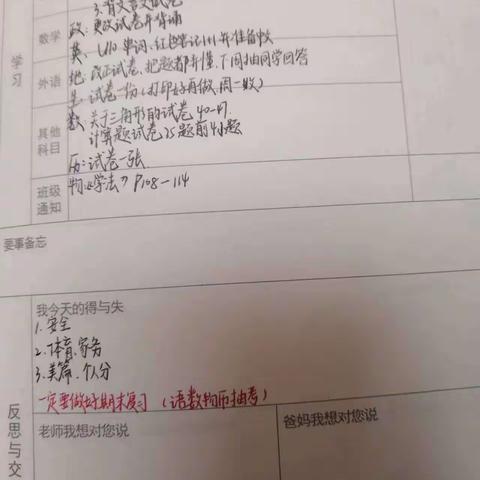 3.背文言文试卷
学习
数学
政:更改试卷并背诵
英:U10单词,红色笔记111并准备听
外语
地:改正试卷,把题都弄懂,下周抽同学回答
生:试卷一份(打印好再做,周一收)
其他科目
数:关于三角形的试卷40-47
计算题试卷25题前4小题
历:试卷一张
班级通知
物《学法》P108-114
要事备忘
我今天的得与失
1.安全
2.体育.家务
3.美篇.个人分
一定要做好期末复习(语数物历抽考)
反思与交
老师我想对您说
爸妈我想对您说